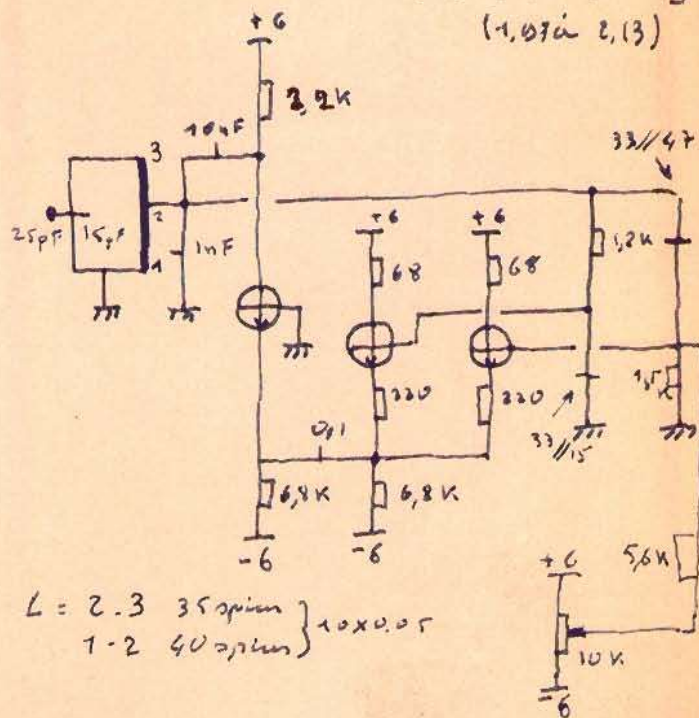 (1,
2,13)
+6
2,2K
10nF
33//47
3
25pF
15pF
2
1
1nF
+6
+6
1,2K
68
68
220
220
1,5
K
33//15
0,1
6,8K
6,8K
-6
-6
5,6K
+6
10K
-6
L = 2.3 35 spires
1-2 40 spires } 10x0.05